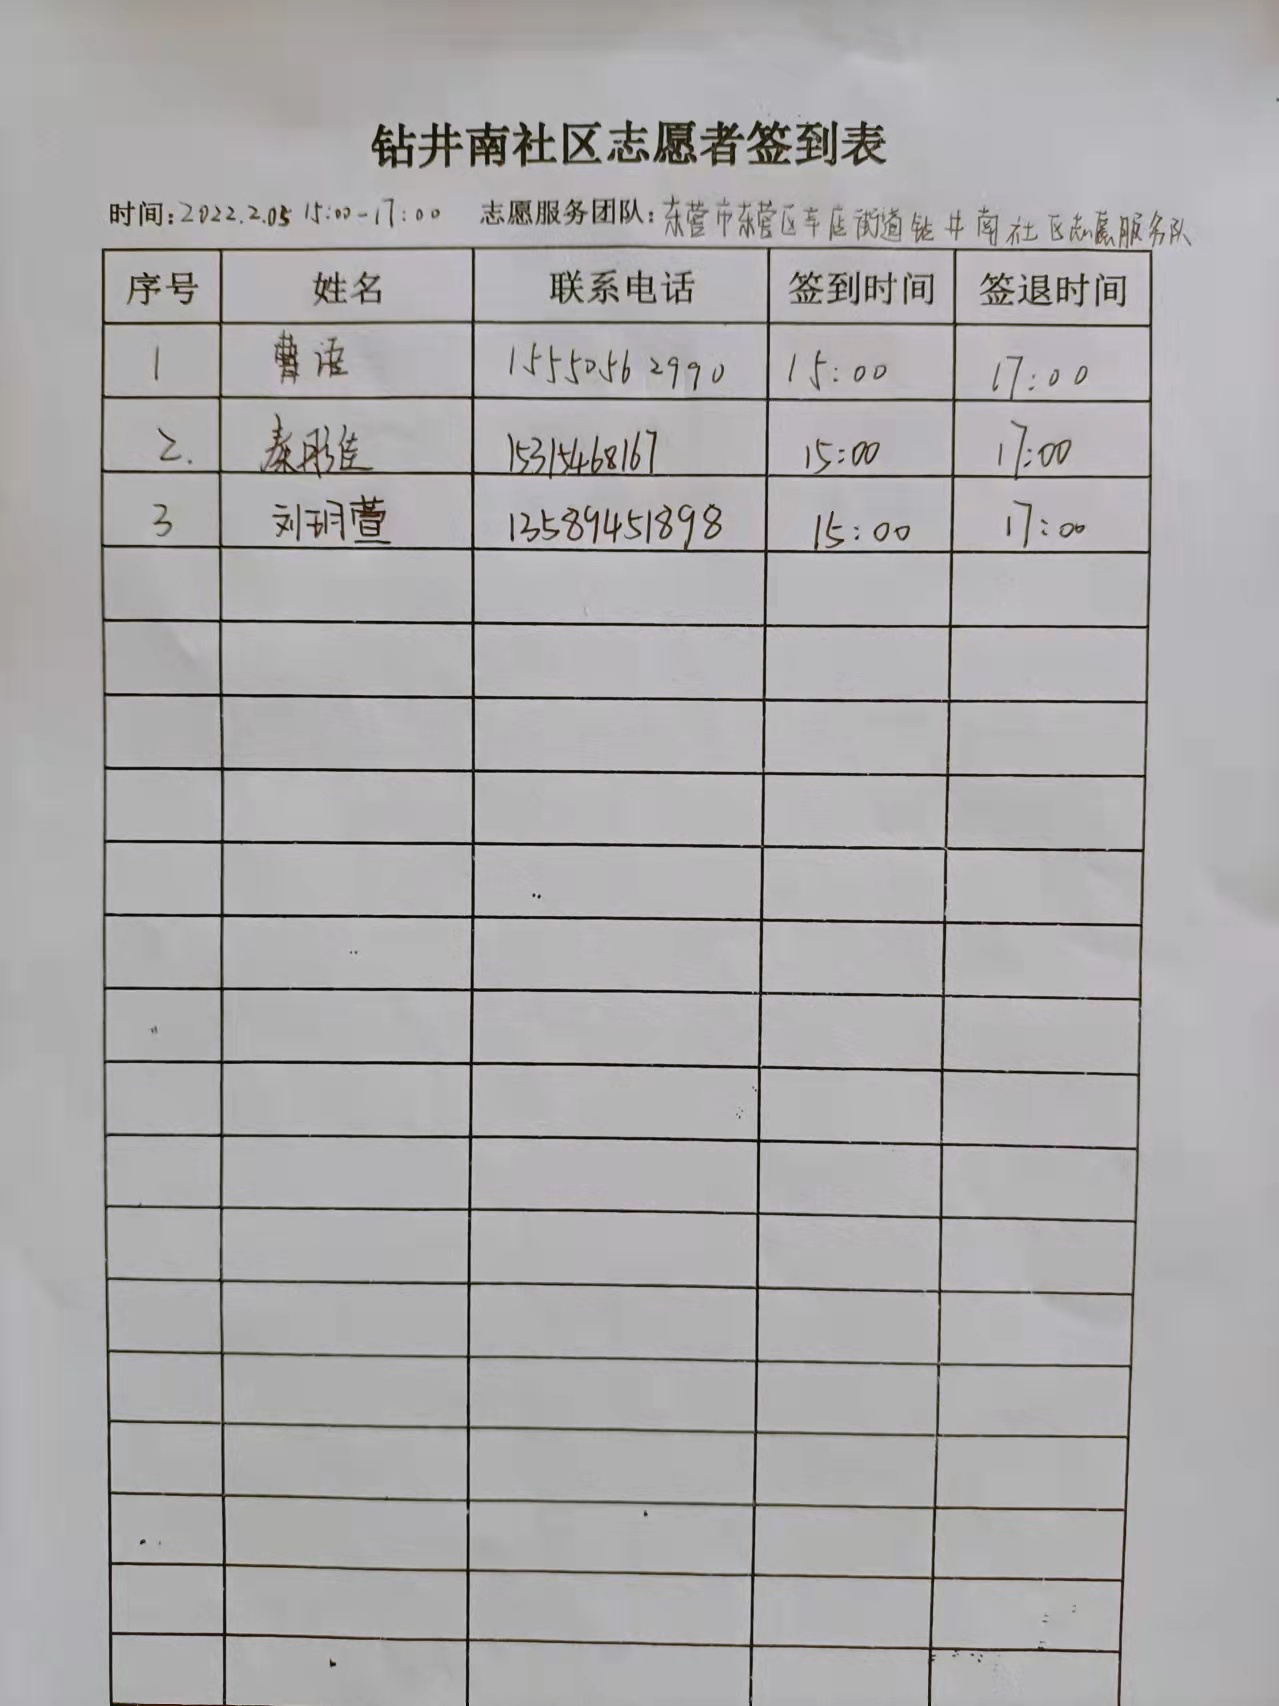 钻井南社区志愿者签到表
时间:2022.2.05 15:00-17:00 志愿服务团队:东营市东营区辛店街道钻井南社区志愿服务队
序号 姓名 联系电话 签到时间 签退时间
1 曹语 15550562990 15:00 17:00
2. 秦彤佳 15315468167 15:00 17:00
3 刘玥萱 13589451898 15:00 17:00